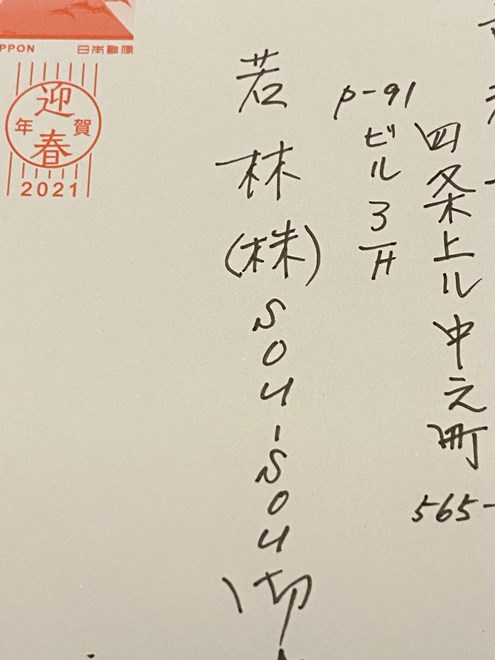 四条上ル中之町565-
P-91ビル3F
若林(株)SOU-SOU御
PPON 日本郵便
迎春
年賀
2021